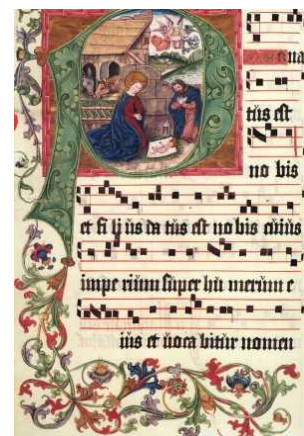 P
tus est
no bis
et fi li us da tus est no bis cuius
impe rium super hu merum e
ius et voca bitur nomen